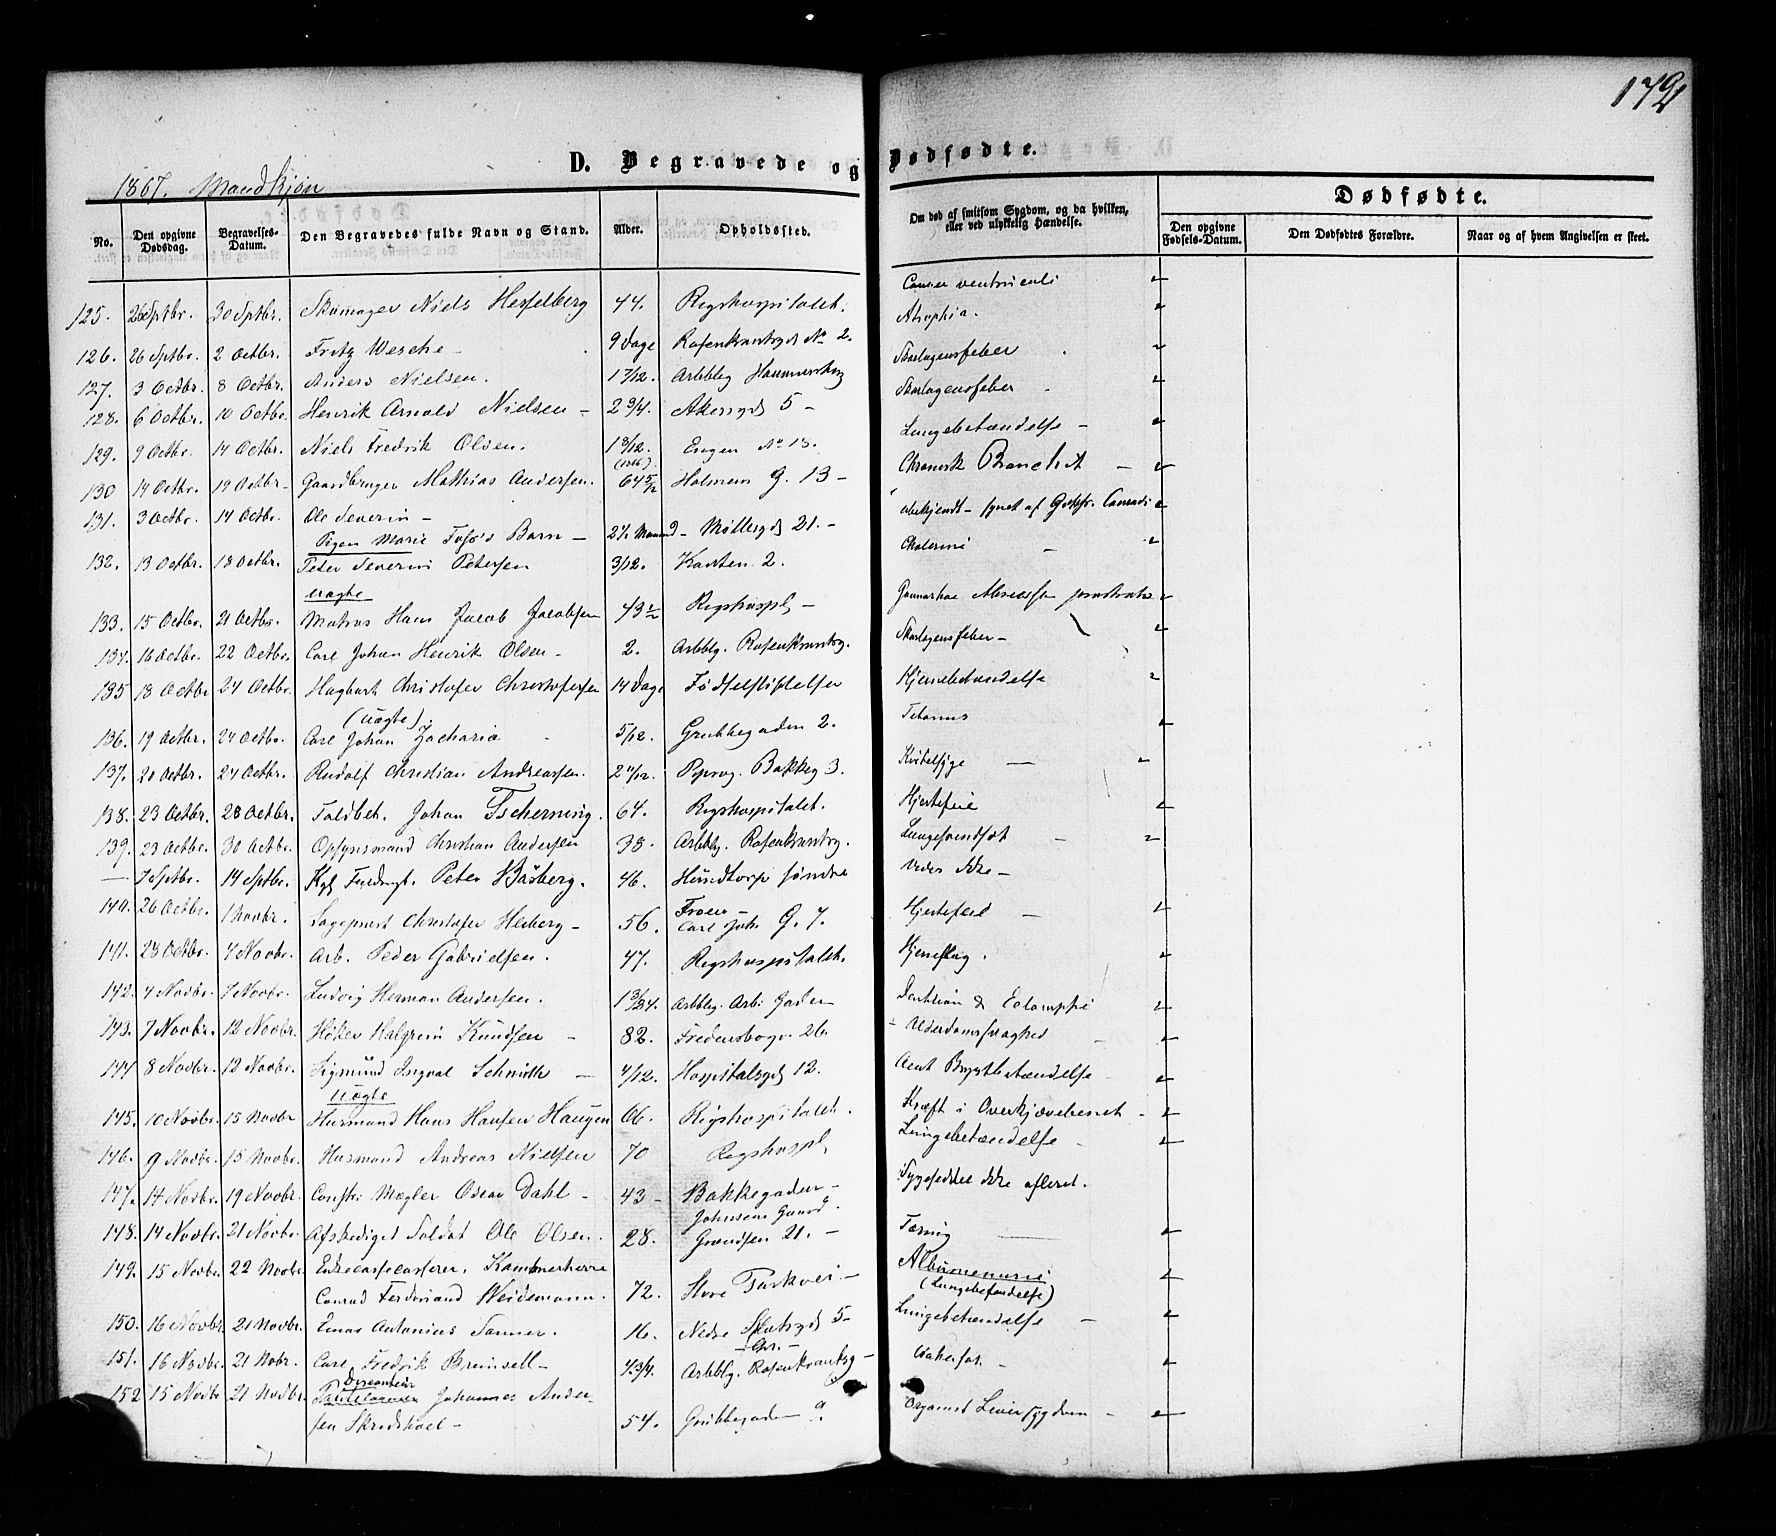 172
D. Begravede og Dødfødte.
1867. Mandkjøn
Dødfødte.
No. Den opgivne Dødsdag. Begravelses-Datum. Den Begravedes fulde Navn og Stand. Alder. Opholdssted. Om død af smitsom Sygdom, og da hvilken, eller ved ulykkelig Hændelse. Den opgivne Fødsels-Datum. Den Dødfødtes Forældre. Naar og af hvem Angivelsen er skeet.
125. 26 Sptbr. 30 Sptbr. Skomager Niels Hesselberg 44. Rigshospitalet. Cancer ventriculi
126. 26 Sptbr. 2 Octbr. Fritz Wesche 9 Dage Rosenkrantzgd No 2. Atrophia.
127. 3 Octbr. 8 Octbr. Anders Nielsen. 1 7/12. Arbblg Skarlagensfeber
128. 6 Octbr. 10 Octbr. Henrik Arnold Nielsen - 2 3/4. Akersgd 5 - Skarlagensfeber
129. 9 Octbr. 14 Octbr. Niels Fredrik Olsen. 1 8/12. Engen No 15. Lungebetændelse -
130 14 Octbr. 19 Octbr. Gaardbruger Mathias Andersen. 64 5/12 Holmens G. 13 - Chronisk Bronchit -
131. 3 Octbr. 14 Octbr. Ole Severin -
Pigen Marie Barn - 2 1/2 Maaned - Møllergd 21. - ubekjendt - synet af Conradi
132. 13 Octbr. 18 Octbr. Peter Severin Petersen 3/12. 2. Cholerine
uægte
133. 15 Octbr. 21 Octbr. Matros Hans Jacob Jacobsen 43 1/2 Rigshospl -
134. 16 Octbr. 22 Octbr. Carl Johan Henrik Olsen - 2. Arbblg. Rosenkrantzg. Skarlagensfeber -
135 18 Octbr 24 Octbr. Hagbart Christofer Christofersen 14 Dage Fødselstiftelsen Hjernebetændelse
(uægte).
136. 19 Octbr. 24 Octbr. Carl Johan Zacharia 5/12. Grubbegaden 2. Tetanus
137. 20 Octbr. 24 Octbr. Rudolf Christian Andreassen. 2 11/12. Pipervg. Bakkeg 3.
138. 23 Octbr. 28 Octbr. Toldbet. Johan Tscherning. 64. Rigshospitalet. Hjertefeil
139. 23 Octbr. 30 Octbr. Opsynsmand Christian Andersen 38. Arbblg. Rosenkrantzg. Lungesvindsot -
— 7 Sptbr. 14 Sptbr. Kgl Fuldmgt. Peter Båsberg. 46. Hundtorp søndre Vides ikke -
Froen -
140. 26 Octbr. 1 Novbr. Sogeprest Christofer Heiberg - 56. Carl Joh. G. 7. Hjertefeil -
141. 28 Octbr. 4 Novbr. Arb. Peder Gabrielsen. 47. Rigshospitalet. Hjerneslag.
142. 4 Novbr. 7 Novbr. Ludvig Herman Andersen. 1 3/24. Arbblg. Arb: Gaden Dentition & Eclampsi
143. 7 Novbr. 12 Novbr. Høker Halgrim Knudsen - 82. Fredensborgv. 26. Alderdomssvaghed
144 8 Novbr. 12 Novbr. Sigmund Ingval Schmith - 4/12. Hospitalsgd 12. Acut Brystbetændelse
uægte
145. 10 Novbr. 15 Novbr Husmand Hans Hansen Haugen 66. Rigshospitalet. Kræft i Overkjævebenet -
146. 9 Novbr. 15 Novbr. Husmand Andreas Nielsen 70 Rigshospl Lungebetændelse -
147. 14 Novbr. 19 Novbr. Const: Mægler Oscar Dahl - 43 - Bakkegaden - Sygeseddel ikke afleret.
Johnsens Gaard.
148. 14 Novbr. 21 Novbr. Afskediget Soldat Ole Olsen. 28. Grændsen 21. - Tæring
149. 15 Novbr. 22 Novbr. Kammerherre
Conrad Ferdinand Weidemann. 72. Store Parkvei - Albumenurie
(Lungebetændelse)
150. 16 Novbr 21 Novbr. Enas Antonius Sanner. 16. Nedre Slotsgd 5 - Lungebetændelse -
- Chr. -
151. 16 Novbr. 21 Nobr. Carl Fredrik Bremsell - 4 3/4. Arbblg. Rosenkrantzg -
152 15 Novbr 21 Novbr. Johannes Andersen Skredshoel - 54. Grubbegaden 9. Organisk Leversygdom -